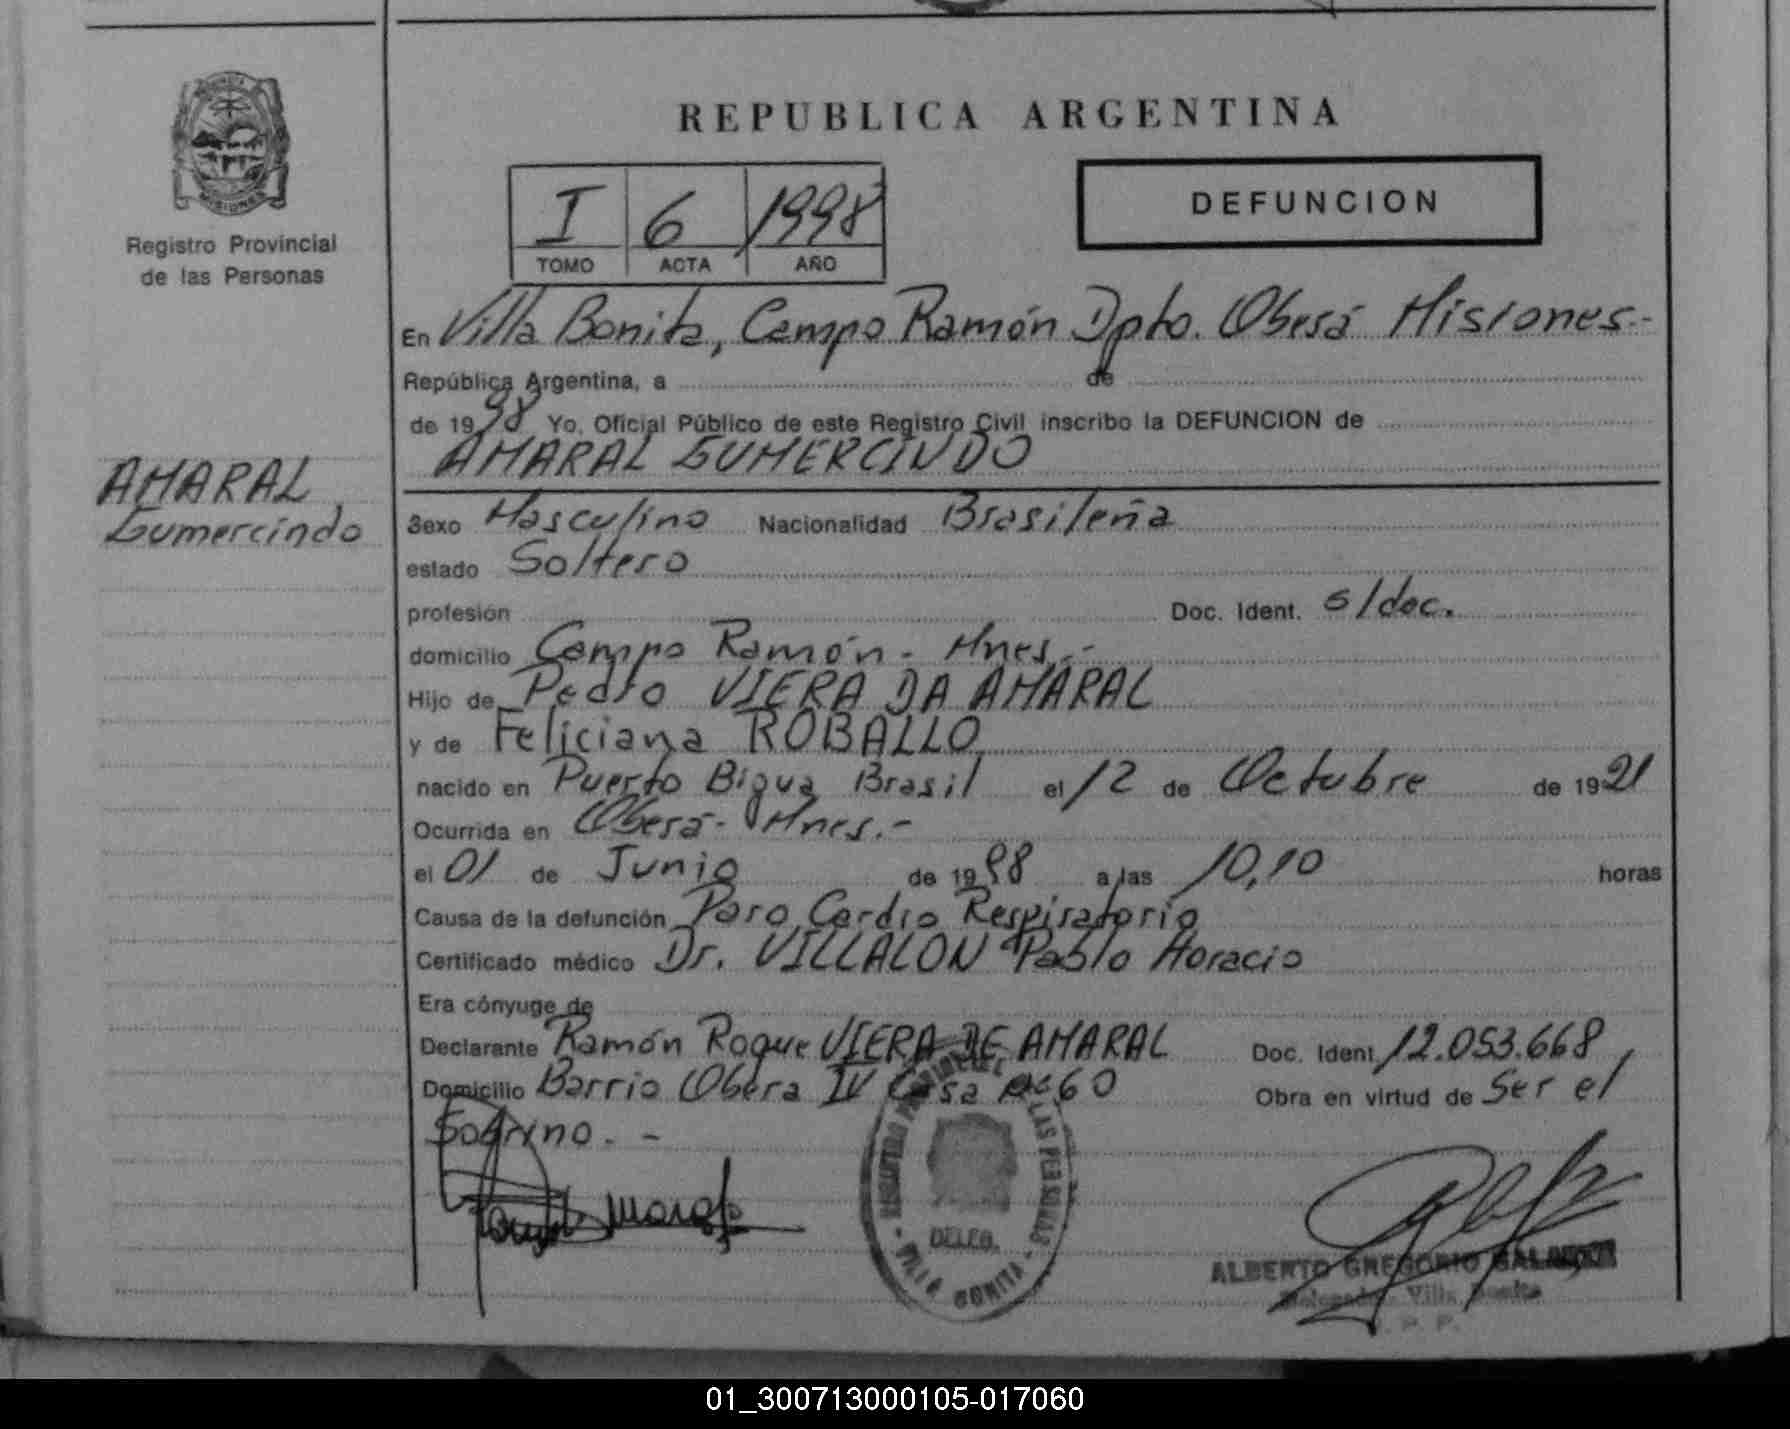 REPUBLICA ARGENTINA
MISIONES
Registro Provincial
de las Personas
I 6 1998
TOMO ACTA AÑO
DEFUNCION
En Villa Bonita, Campo Ramón Dpto. Oberá Misiones.-
República Argentina, a de
de 1998 Yo, Oficial Público de este Registro Civil inscribo la DEFUNCION de
AMARAL GUMERCINDO
AMARAL
Gumercindo
Sexo Masculino Nacionalidad Brasileña
estado Soltero
profesión Doc. Ident. s/doc.
domicilio Campo Ramón - Mnes.-
Hijo de Pedro VIERA DA AMARAL
y de Feliciana ROBALLO
nacido en Puerto Bigua Brasil el 12 de Octubre de 1921
Ocurrida en Oberá - Mnes.-
el 01 de Junio de 1998 a las 10,10 horas
Causa de la defunción Paro Cardio Respiratorio
Certificado médico Dr. VILLALON Pablo Horacio
Era cónyuge de
Declarante Ramón Roque VIERA DE AMARAL Doc. Ident. 12.053.668
Domicilio Barrio Oberá IV Casa nº 60 Obra en virtud de Ser el
Sobrino. -
REGISTRO PROVINCIAL DE LAS PERSONAS
DELEG.
- VILLA BONITA -
ALBERTO GREGORIO
Villa Bonita
01_300713000105-017060